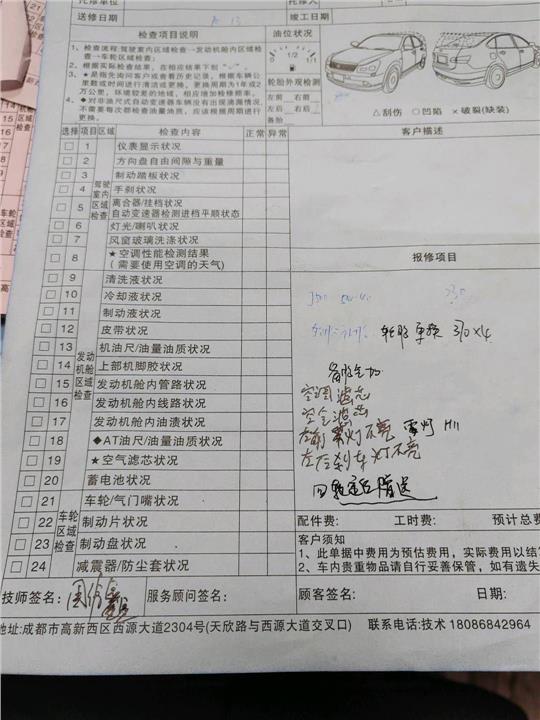 送修日期
竣工日期
检查项目说明
油位状况
1、检查流程:驾驶室内区域检查→发动机舱内区域检
查→车轮区域检查;
2、根据实际检查结果，在相应结果下划“✓”。
3、★是指先询问客户或查看历史记录，根据车辆公
里数或时间进行清洁或更换，更换周期为1年或2
万公里，环境较差的地域，相应增加检修频率。
4、◆对非油尺式自动变速器车辆没有出现滴漏情况，
不需要每次都检查油量油质，应该根据周期进行
更换。
0 1/2 1/1
轮胎外观检测
左前 右前
左后 右后
备胎
△刮伤 ○凹陷 ×破裂(缺装)
选择 项目 区域 检查内容 正常 异常
客户描述
驾驶室内区域检查
1 仪表显示状况
2 方向盘自由间隙与重量
3 制动踏板状况
4 手刹状况
5 离合器/挂档状况
自动变速器检测进档平顺状态
6 灯光/喇叭状况
7 风窗玻璃洗涤状况
8 ★空调性能检测结果
(需要使用空调的天气)
报修项目
发动机舱区域检查
9 清洗液状况
10 冷却液状况
11 制动液状况
12 皮带状况
13 机油尺/油量油质状况
14 上部机脚胶状况
15 发动机舱内管路状况
16 发动机舱内线路状况
17 发动机舱内油渍状况
18 ◆AT油尺/油量油质状况
19 ★空气滤芯状况
20 蓄电池状况
车轮区域检查
21 车轮/气门嘴状况
22 制动片状况
23 制动盘状况
24 减震器/防尘套状况
轮胎 更换 370×4
空调滤芯
空气滤芯
左前雾灯不亮 雾灯 H11
左后刹车灯不亮
配件费: 工时费: 预计总费
客户须知
1、此单据中费用为预估费用，实际费用以结
2、车内贵重物品请自行妥善保管，如有遗失
技师签名: 服务顾问签名: 顾客签名: 日期:
地址:成都市高新西区西源大道2304号(天欣路与西源大道交叉口) 联系电话:技术 18086842964